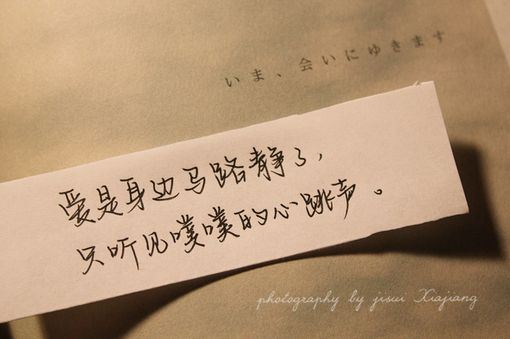 いま、会いにゆきます
爱是身边马路静了，
只听见噗噗的心跳声。
photography by jisui Xiajiang